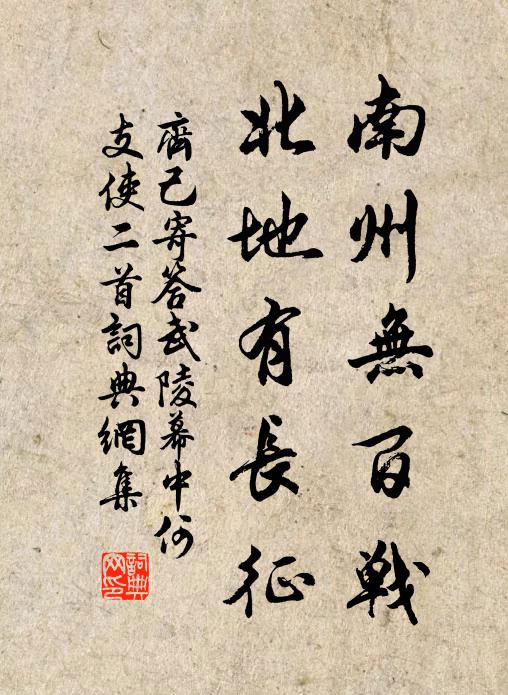 南州無百戦
北地有長征
齊己寄答武陵幕中何
支使二首詞典網集
詞典
网印